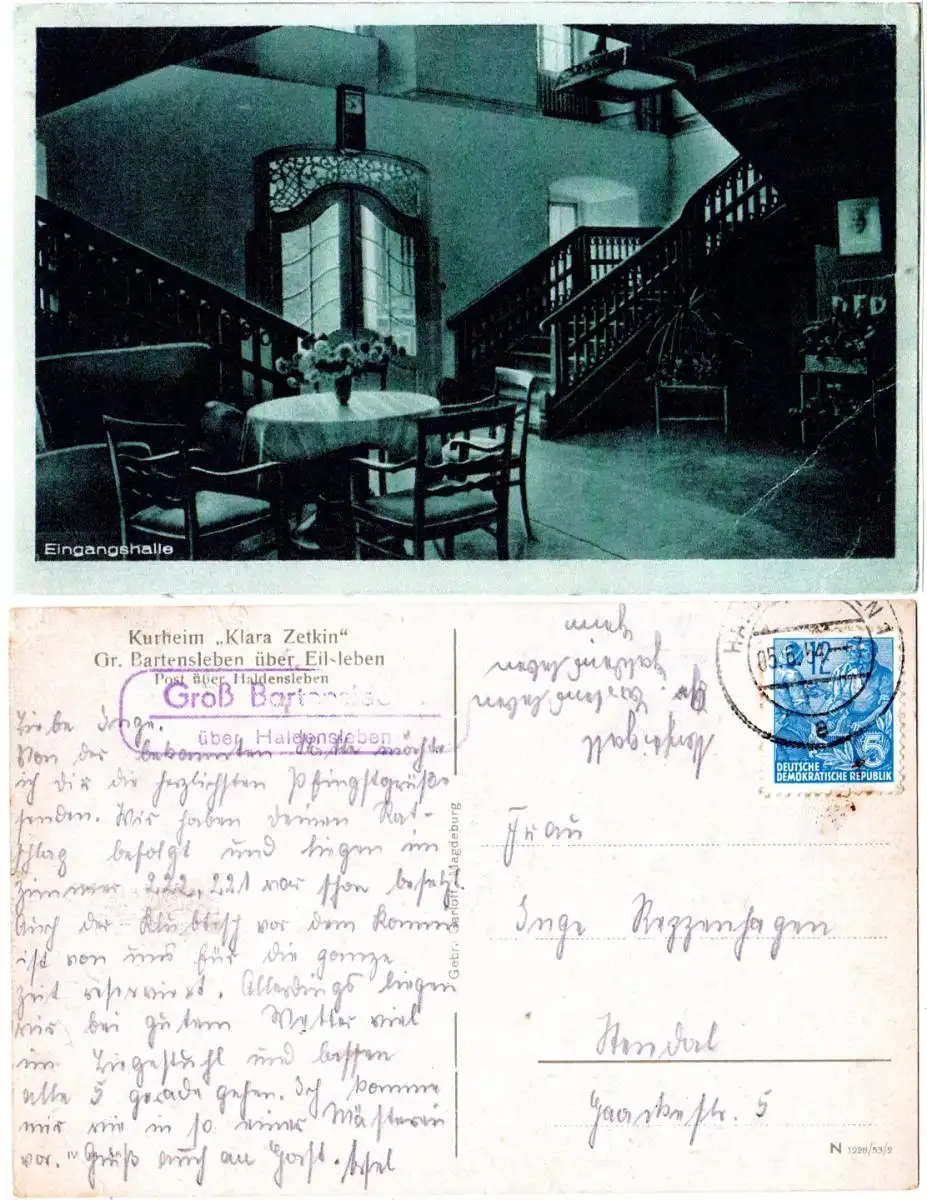 DFD
Eingangshalle
Kurheim „Klara Zetkin"
Gr. Bartensleben über Eilsleben
Post über Haldensleben
Groß Bartensleben
über Haldensleben
Liebe Inge.
Von der bekannten Stätte möchte
ich Dir die herzlichsten Pfingstgrüße
senden. Wir haben deinen Rat-
schlag befolgt und liegen im
Zimmer 222, 221 war schon besetzt.
Auch der Klubtisch vor dem Kamin
ist von uns für die ganze
Zeit reserviert. Allerdings liegen
wir bei gutem Wetter viel
im Liegestuhl und lassen
alle 5 gerade gehen. Ich komme
mir wie in so einer Mästerei
vor. Gruß auch an Horst.
Gebr. Garloff, Magdeburg
Gr. Bartensleben
Kurheim
05.6.54
5
DEUTSCHE
DEMOKRATISCHE REPUBLIK
Frau
Inge Rezzenhagen
Stendal
str. 5
N 1228/53/2
IV